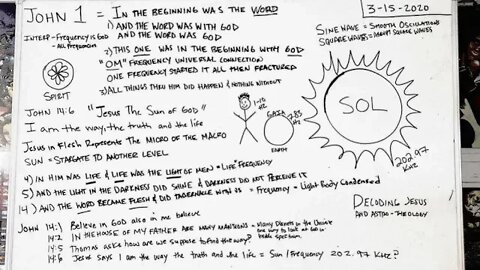 JOHN 1 = IN THE BEGINNING WAS THE WORD
INTERP - FREQUENCY IS GOD
- ALL FREQUENCIES
1) AND THE WORD WAS WITH GOD
AND THE WORD WAS GOD
2) THIS ONE WAS IN THE BEGINNING WITH GOD
"OM" FREQUENCY UNIVERSAL CONNECTION
ONE FREQUENCY STARTED IT ALL THEN FRACTURED
3) ALL THINGS THRU HIM DID HAPPEN & NOTHING WITHOUT
SPIRIT
3-15-2020
SINE WAVE = SMOOTH OSCILLATIONS
SQUARE WAVES = SQUARE WAVES
JOHN 14:6 "JESUS THE SUN OF GOD"
I am the way, the truth, and the life
JESUS IN FLESH REPRESENTS THE MICRO OF THE MACRO
SUN = STARGATE TO ANOTHER LEVEL
1-10
HZ
GAIA
7.83
HZ
EARTH
SOL
202.97
KHZ
4) IN HIM WAS LIFE & LIFE WAS THE LIGHT OF MEN = "LIFE" FREQUENCY
5) AND THE LIGHT IN THE DARKNESS DID SHINE & DARKNESS DID NOT PERCEIVE IT
14) AND THE WORD BECAME FLESH & DID TABERNACLE WITH US = FREQUENCY = LIGHT BODY CONDENSED
DECODING JESUS
AND ASTRO-THEOLOGY
JOHN 14:1 Believe in GOD also in me believe
14:2 IN THE HOUSE OF MY FATHER ARE MANY MANSIONS = MANY PLANETS IN THE UNIVERSE
ONE WAY TO LOOK AT GOD IN
14:5 Thomas asks how are we suppose to find the way?
14:6 Jesus Says I am the way the truth and the life = Sun / Frequency 202.97 KHZ?